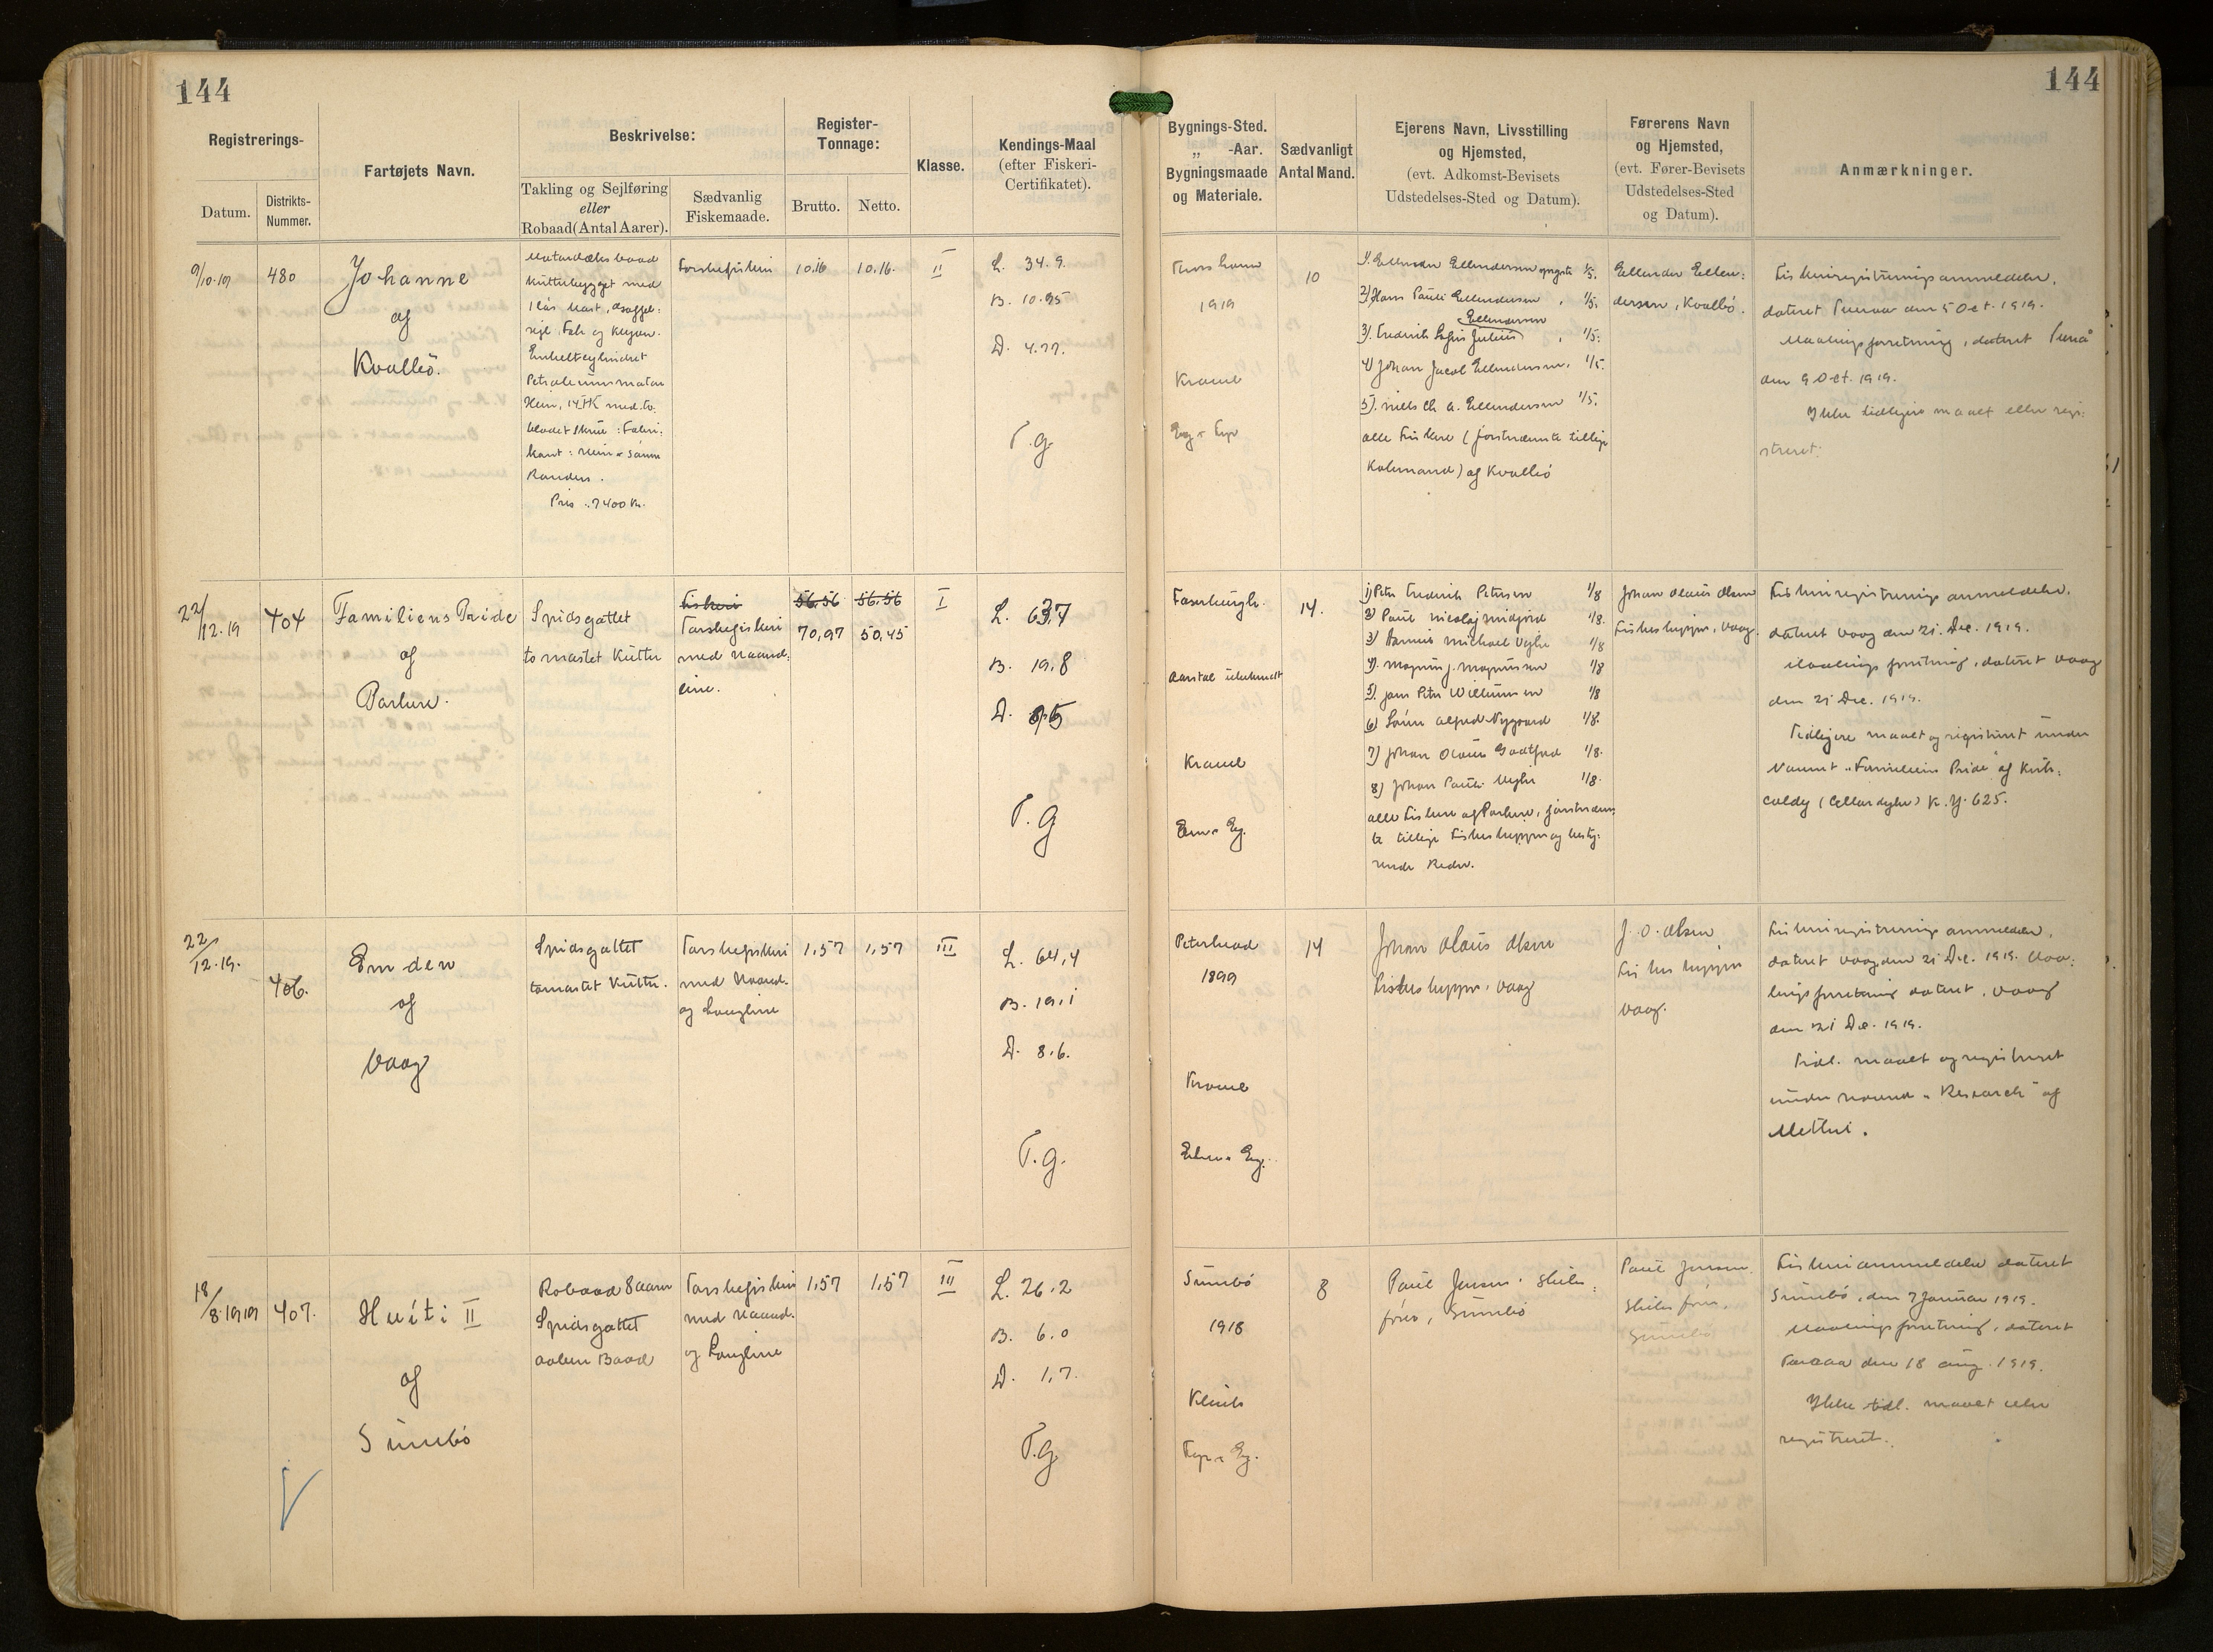 144
144
Registrerings-
Datum.
Distrikts-
Nummer.
Fartøjets Navn.
Beskrivelse:
Takling og Sejlføring
eller
Robaad (Antal Aarer).
Sædvanlig
Fiskemaade.
Register-
Tonnage:
Brutto.
Netto.
Klasse.
Kendings-Maal
(efter Fiskeri-
Certifikatet).
Bygnings-Sted.
„ -Aar.
Bygningsmaade
og Materiale.
Sædvanligt
Antal Mand.
Ejerens Navn, Livsstilling
og Hjemsted,
(evt. Adkomst-Bevisets
Udstedelses-Sted og Datum).
Førerens Navn
og Hjemsted,
(evt. Fører-Bevisets
Udstedelses-Sted
og Datum).
Anmærkninger.
9/10.19
480
Johanne
af
Kvalbö.
Motordæksbaad
kutterbygget med
1 løs Mast, Gaffel:
sejl Fok og Klyver.
Enkeltcylindret
Petroleumsmotor
Hein, 14 HK med to:
bladet Skrue: Fabri:
kant: Hein & Sønner
Randers.
Pris: 7400 Kr.
Torskefiskeri
10.16
10.16.
II
L. 34.9.
B. 10.95
D. 4.77.
T.g
Thorshavn
1919
Kravel
Eg & Fyr
10
1). Ellendur Ellendersen 1/5.
2) Hans Pauli Ellendersen 1/5.
Ellendersen
3). Fredrik Julius 1/5.
4) Johan Jacob Ellendersen, 1/5.
5). Niels Chr. A. Ellendersen 1/5.
alle Fiskere (førstnævnte tillige
Købmand) af Kvalbö
Ellendur Ellen:
dersen, Kvalbö.
Fiskeriregistreringsanmeldelse,
dateret den 5 Oct. 1919.
Maalingsforretning, dateret
den 9 Oct. 1919.
Ikke tidligere maalt eller regi:
streret.
22/12.19
404
Familiens Pride
af
Porkere.
Spidsgattet
to mastet Kutter
Fiskeri
Torskefiskeri
med Haand:
line.
56.56
70,97
56.56
50,45
I
L. 63,7
B. 19.8
D. 8,5
T.g
Faserburgh.
Aarstal ubekendt
Kravel
Elm & Eg.
14.
1) Peter Fredrik Petersen 1/8
2) Paul Nicolaj Midjord 1/8.
3) Hannis Michael Vághe 1/8
4). Magnus J. Magnussen 1/8
5). Jens Peter Willumsen 1/8
6) Sören Alfred Nygaard 1/8.
7) Johan Olaus Godtfred 1/8.
8) Johan Pauli Vághe 1/8.
alle Fiskere af Porkere, førstnævn:
te tillige Fiskeskipper og besty:
rende Reder.
Johan Olaus Olsen
Fiskeskipper, Vaag.
Fiskeriregistreringsanmeldelse,
dateret Vaag den 21. Dec. 1919.
Maalingsforretning, dateret Vaag
den 21 Dec. 1919.
Tidligere maalt og registreret under
Navnet „Familiens Pride" af Kirk:
caldy (Cellardyke) K.Y. 625.
22/12.19.
406.
Emden
af
Vaag
Spidsgattet
tomastet Kutter.
Torskefiskeri
med Haand-
og Langline
1,57
1,57
III
L. 64,4
B. 19.1
D. 8.6.
T.g.
Peterhead
1899
Kravel
Elm & Eg.
14
Johan Olaus Olsen
Fiskeskipper, Vaag
J. O. Olsen
Fiskeskipper
Vaag.
Fiskeriregistreringsanmeldelse,
dateret Vaag den 21 Dec. 1919. Maa:
lingsforretning dateret, Vaag
den 21 Dec. 1919.
Tidl. maalt og registreret
under Navnet „Research" af
Methil.
18/8.1919
407.
Huíti II
af
Sumbö
Robaad 8 aarer
Spidsgattet
aaben Baad
Torskefiskeri
med Haand-
og Langline
1,57
1,57
III
L. 26.2
B. 6.0
D. 1,7.
T.g
Sumbö
1918
Klink
Fyr & Eg.
8
Paul Jensen,
Sumbö
Paul Jensen
Sumbö
Fiskerianmeldelse dateret
Sumbö, den 7 Januar 1919.
Maalingsforretning, dateret
den 18 Aug. 1919.
Ikke tidl. maalt eller
registreret.